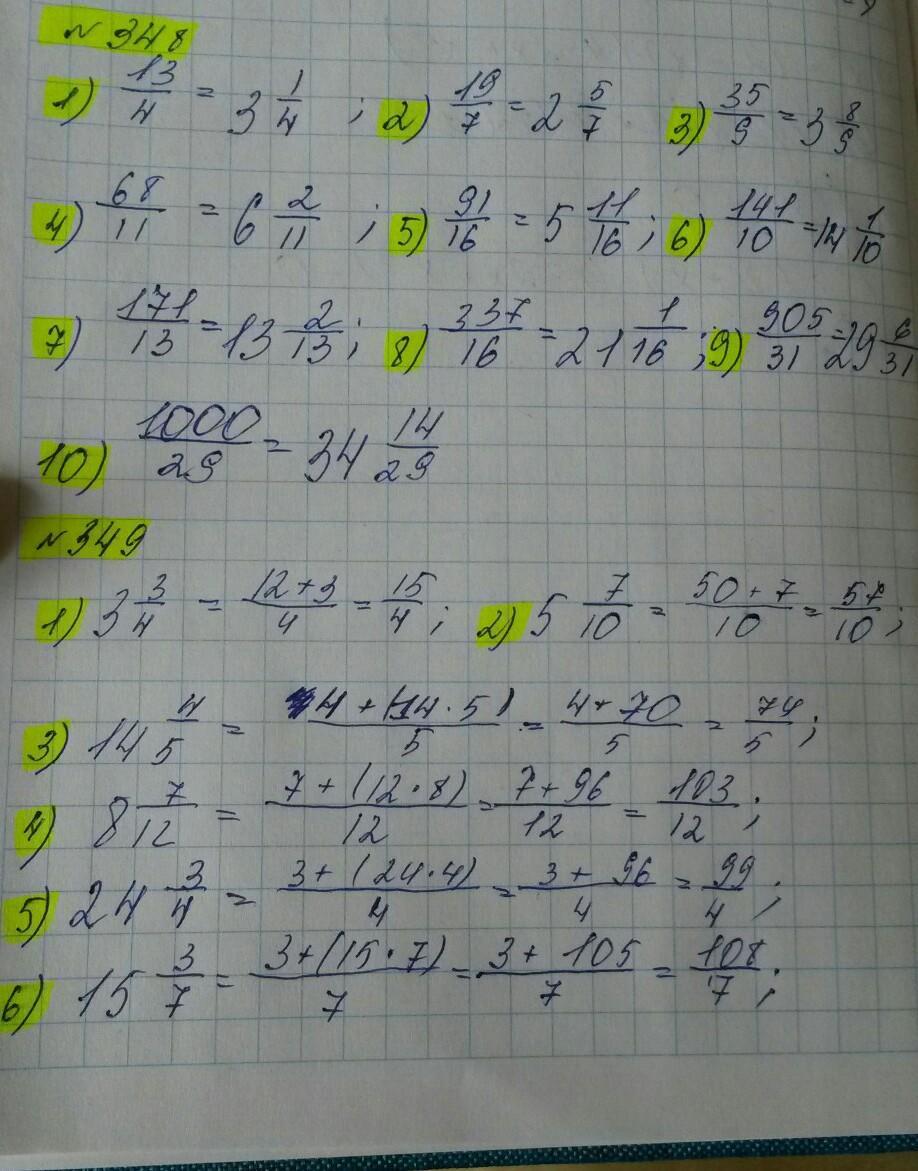 № 348
1) 13/4 = 3 1/4 ; 2) 19/7 = 2 5/7 3) 35/9 = 3 8/9
4) 68/11 = 6 2/11 ; 5) 91/16 = 5 11/16 ; 6) 141/10 = 14 1/10
7) 171/13 = 13 2/13 ; 8) 337/16 = 21 1/16 ; 9) 905/31 = 29 6/31
10) 1000/29 = 34 14/29
№ 349
1) 3 3/4 = 12+3/4 = 15/4 ; 2) 5 7/10 = 50+7/10 = 57/10 ;
3) 14 4/5 = 4+(14·5)/5 = 4+70/5 = 74/5 ;
4) 8 7/12 = 7+(12·8)/12 = 7+96/12 = 103/12 ;
5) 24 3/4 = 3+(24·4)/4 = 3+96/4 = 99/4 ;
6) 15 3/7 = 3+(15·7)/7 = 3+105/7 = 108/7 ;